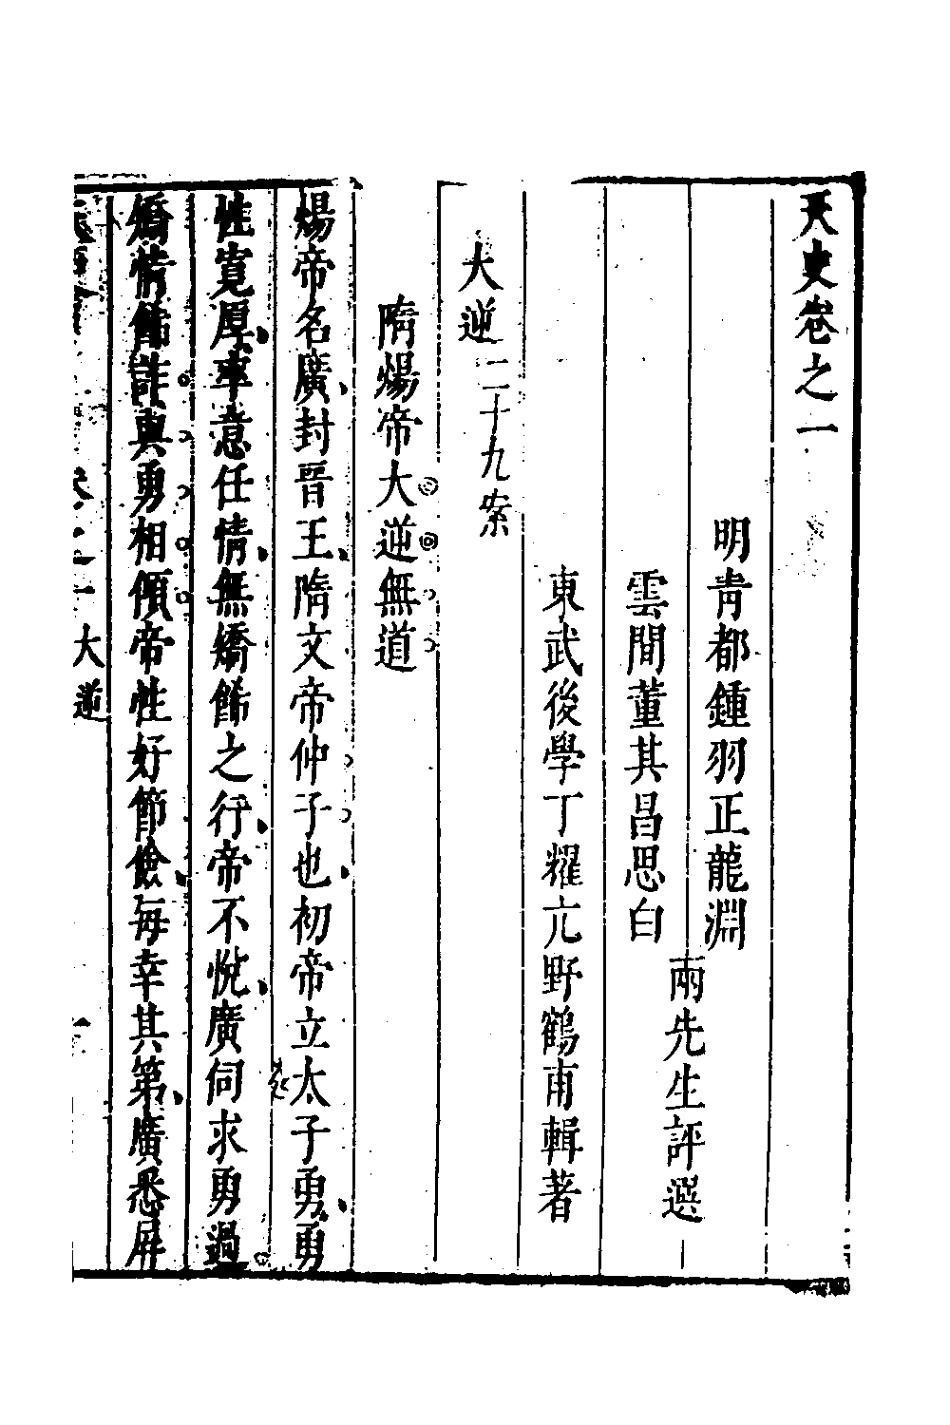 天史卷之一
明青都鍾羽正龍淵
雲間董其昌思白
兩先生評選
東武後學丁耀亢野鶴甫輯著
大逆二十九案
隋煬帝大逆無道
煬帝名廣封晋王隋文帝仲子也初帝立太子勇勇
性寬厚率意任情無矯餙之行帝不悅廣伺求勇過
矯情餙詐與勇相傾帝性好節儉每幸其第廣悉屏
卷之一 大逆 一